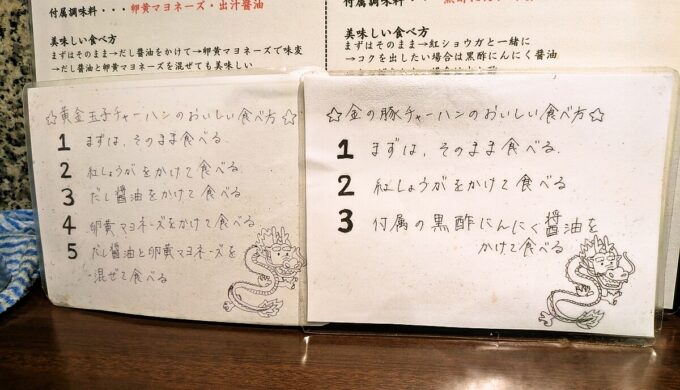 付属調味料・・・卵黄マヨネーズ・出汁醤油
美味しい食べ方
まずはそのまま→だし醤油をかけて→卵黄マヨネーズで味変
→だし醤油と卵黄マヨネーズを混ぜても美味しい
付属調味料・・・黒酢にんにく醤油
美味しい食べ方
まずはそのまま→紅ショウガと一緒に
→コクを出したい場合は黒酢にんにく醤油
☆黄金玉子チャーハンのおいしい食べ方☆
1 まずは、そのまま食べる
2 紅しょうがをかけて食べる
3 だし醤油をかけて食べる
4 卵黄マヨネーズをかけて食べる
5 だし醤油と卵黄マヨネーズを
混ぜて食べる
☆金の豚チャーハンのおいしい食べ方☆
1 まずは、そのまま食べる。
2 紅しょうがをかけて食べる
3 付属の黒酢にんにく醤油を
かけて食べる